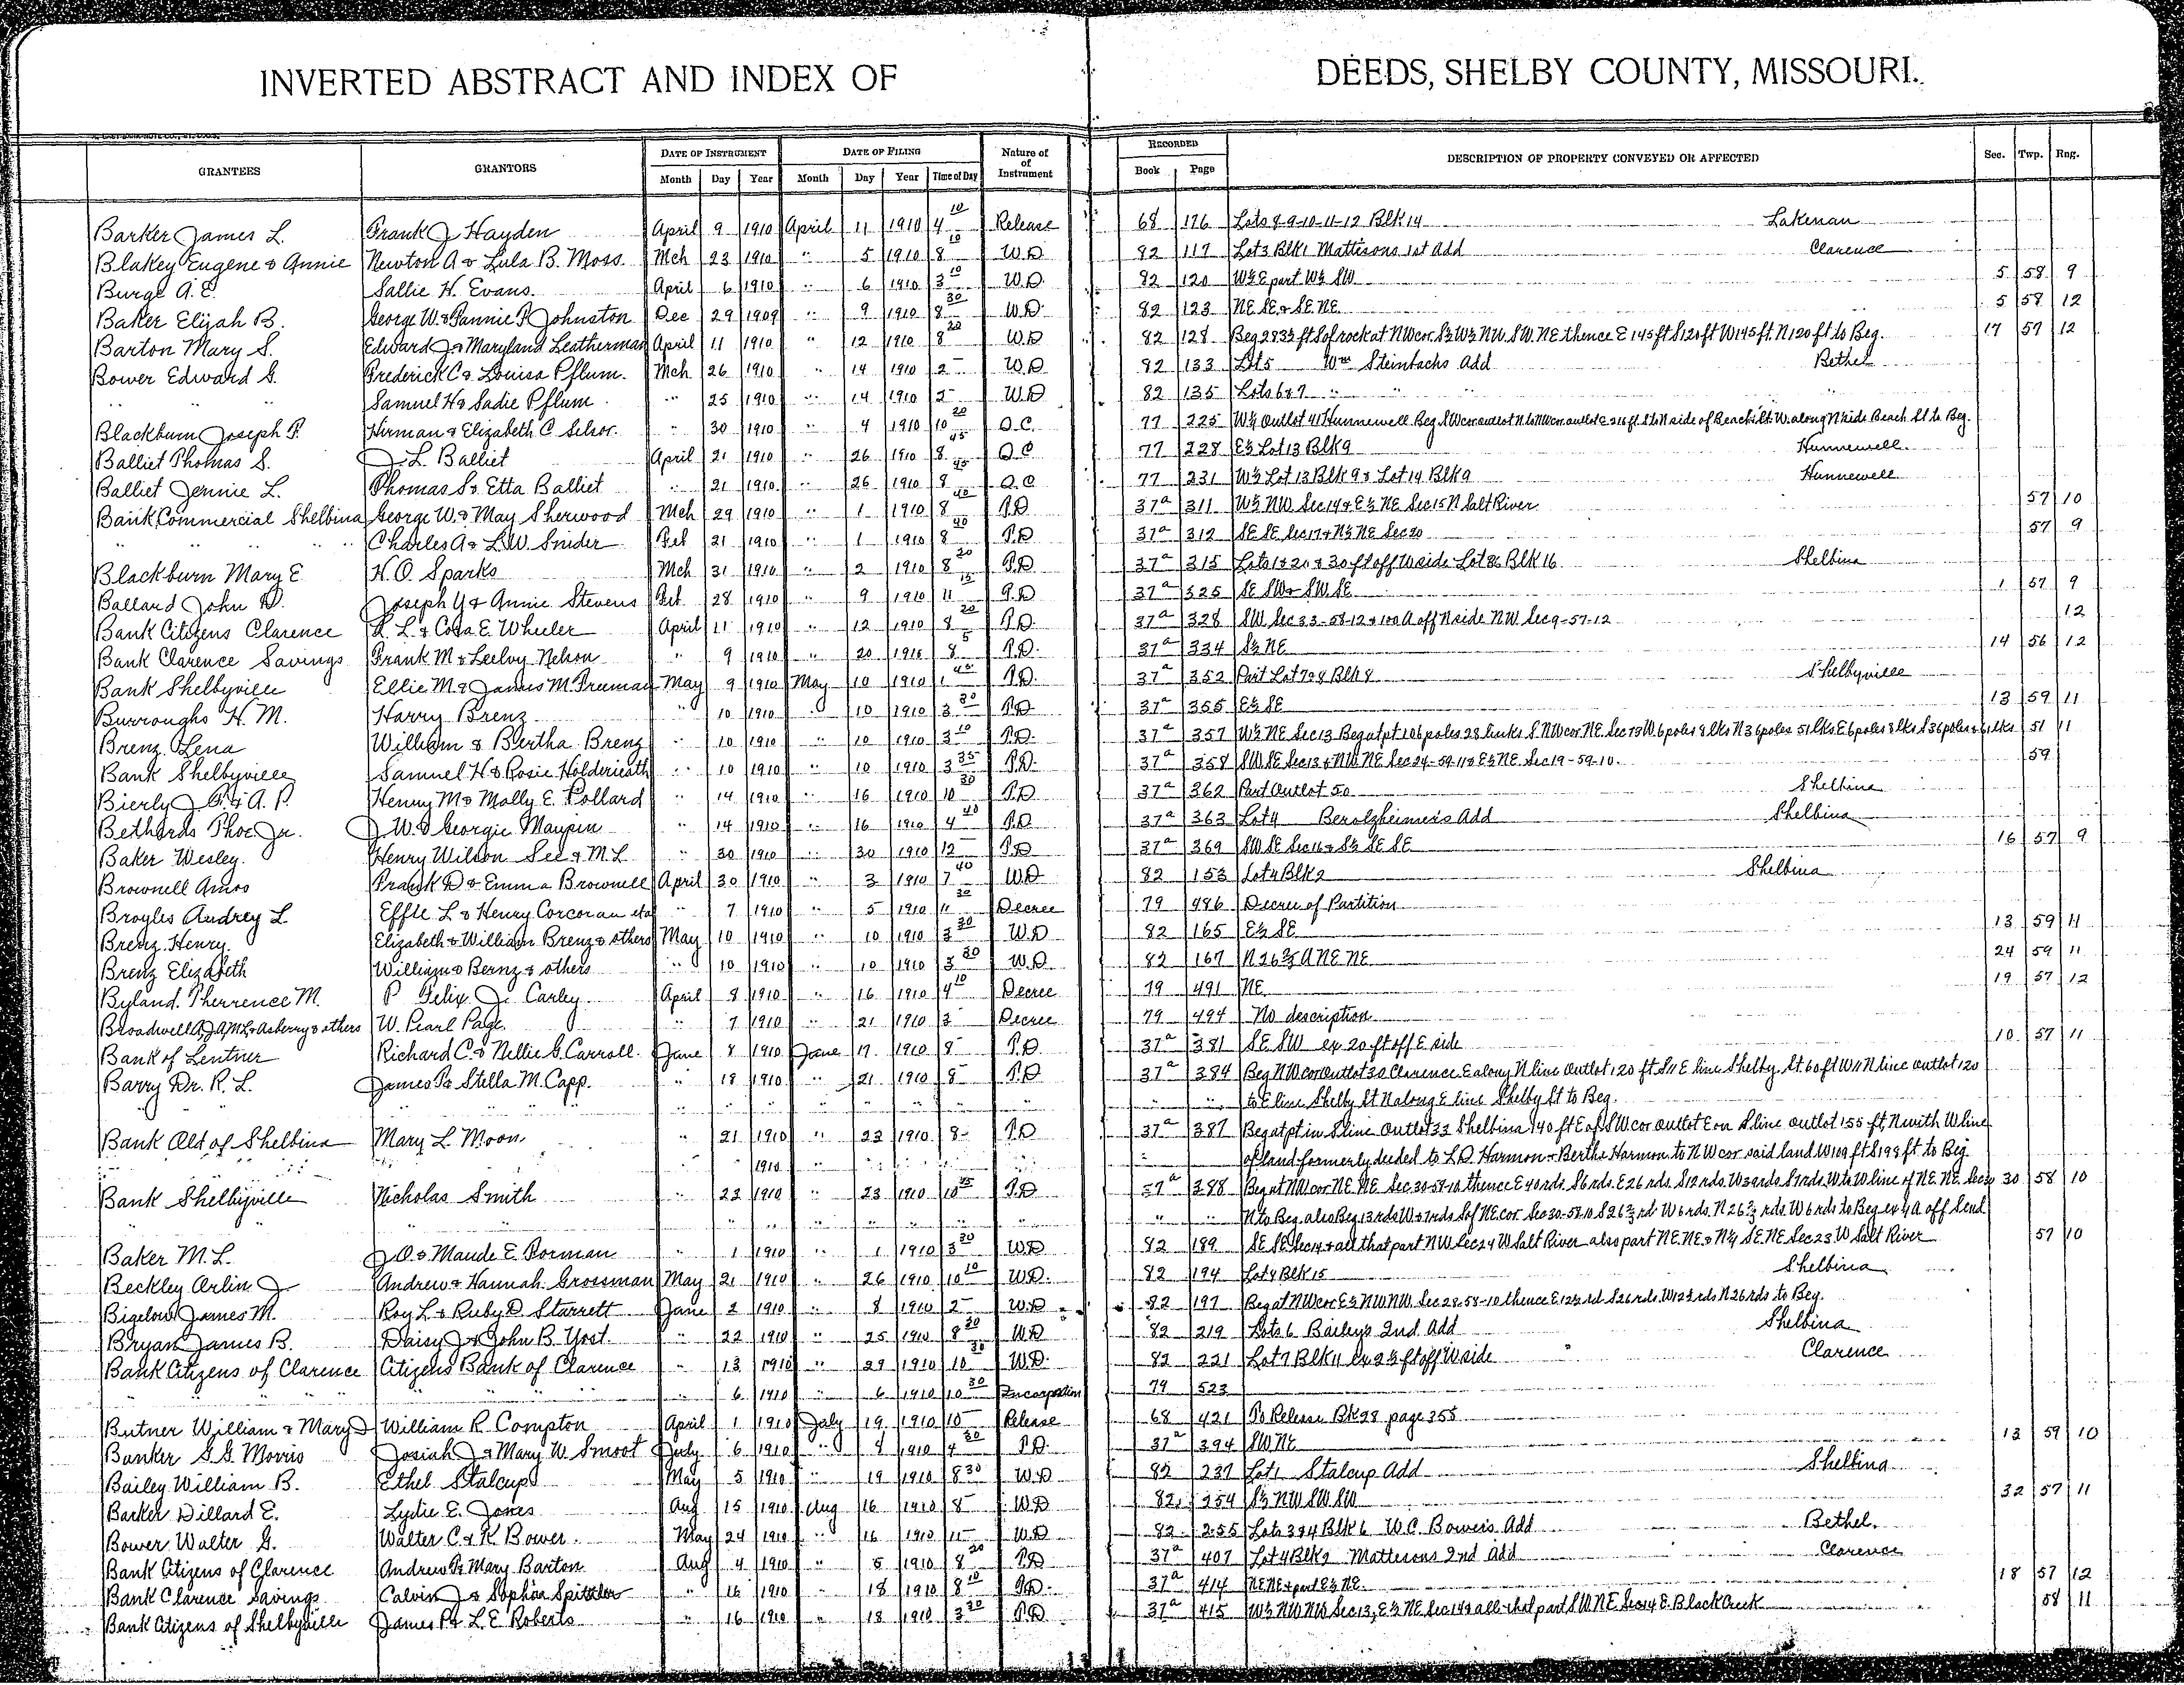 INVERTED ABSTRACT AND INDEX OF DEEDS, SHELBY COUNTY, MISSOURI.
GRANTEES GRANTORS DATE OF INSTRUMENT DATE OF FILING Nature of of Instrument RECORDED DESCRIPTION OF PROPERTY CONVEYED OR AFFECTED Sec. Twp. Rng.
Month Day Year Month Day Year Time of Day Book Page
Barker James L. Frank J Hayden April 9 1910 April 11 1910 4 10 Release 68 176 Lots 8-9-10-11-12 Blk 14 Lakenan
Blakey Eugene & Annie Newton A & Lula B. Moss Mch 23 1910 " 5 1910 8 10 W.D 82 117 Lot 3 Blk 1 Mattesons 1st Add Clarence
Burge A. E. Sallie H. Evans. April 6 1910 " 6 1910 3 10 W.D. 82 120 W½ E part W½ SW 5 58 9
Baker Elijah B. George W. & Fannie P. Johnston Dec 29 1909 " 9 1910 8 30 W.D. 82 123 NE SE & SE NE 5 58 12
Barton Mary S. Edward J. & Maryland Leatherman April 11 1910 " 12 1910 8 20 W.D 82 128 Beg 283½ ft S of rock at NW cor. S½ W½ NW SW NE thence E 145 ft S 120 ft W 145 ft. N 120 ft to Beg. 17 57 12
Bower Edward G. Frederick C & Louisa Pflum. Mch 26 1910 " 14 1910 2 – W.D 82 133 Lot 5 Wm Steinbachs Add Bethel
" " Samuel H & Sadie Pflum " 25 1910 " 14 1910 2 – W.D 82 135 Lots 6 & 7 " " "
Blackburn Joseph P. Hirman & Elizabeth C " 30 1910 " 4 1910 10 20 Q.C. 77 225 W½ Outlot 41 Hunnewell Beg SW cor outlot N to NW cor outlot E 216 ft S to N side of Beach St. W. along N side Beach St to Beg.
Balliet Thomas S. J. L. Balliet April 21 1910 " 26 1910 8 45 Q.C 77 228 E½ Lot 13 Blk 9 Hunnewell
Balliet Jennie L. Thomas S & Etta Balliet " 21 1910 " 26 1910 8 45 Q.C 77 231 W½ Lot 13 Blk 9 & Lot 14 Blk 9 Hunnewell
Bank Commercial Shelbina George W. & May Sherwood Mch 29 1910 " 1 1910 8 40 T.D 37a 311 W½ NW Sec 14 & E½ NE Sec 15 N Salt River 57 10
" " " Charles A & L.W. Snider Feb 21 1910 " 1 1910 8 40 T.D 37a 312 SE SE Sec 17 & N½ NE Sec 20 57 9
Blackburn Mary E H. O. Sparks Mch 31 1910 " 2 1910 8 20 T.D 37a 315 Lots 1 & 2 & 30 ft off W side Lot Blk 16 Shelbina
Ballard John D. Joseph Y & Annie Stevens Feb 28 1910 " 9 1910 11 15 T.D 37a 325 SE SW & SW SE 1 57 9
Bank Citizens Clarence R. L. & Cora E. Wheeler April 11 1910 " 12 1910 8 20 T.D. 37a 328 SW Sec 33-58-12 & 100 A off N side NW Sec 9-57-12 12
Bank Clarence Savings Frank M & Nelson " 9 1910 " 20 1910 8 5 T.D. 37a 334 S½ NE 14 56 12
Bank Shelbyville Ellie M. & James M. Freeman May 9 1910 May 10 1910 1 40 T.D 37a 352 Part Lot 7 & 8 Blk 8 Shelbyville
Burroughs H. M. Harry Brenz " 10 1910 " 10 1910 3 30 T.D 37a 355 E½ SE 13 59 11
Brenz Lena William & Bertha Brenz " 10 1910 " 10 1910 3 10 T.D. 37a 357 W½ NE Sec 13 Beg at pt 106 poles 28 links S. NW cor NE. Sec 13 W. 6 poles 8 lks N 36 poles 51 lks E 6 poles 8 lks S 36 poles & 51 lks 51 11
Bank Shelbyville Samuel H & Rosie Holderieath " 10 1910 " 10 1910 3 35 T.D. 37a 358 SW SE Sec 13 & NW NE Sec 24-59-11 & E½ NE. Sec 19-59-10. 59
Bierly J. P. & A. P. Henry M & Molly E. Pollard " 14 1910 " 16 1910 10 30 T.D 37a 362 Part Outlot 50 Shelbina
Bethards Thoe Jr. J. W. & Georgie Maupin " 14 1910 " 16 1910 4 40 T.D 37a 363 Lot 4 Berolzheimers Add Shelbina
Baker Wesley. Henry Wilson See & M. L " 30 1910 " 30 1910 12 – T.D 37a 369 SW SE Sec 16 & S½ SE SE 16 57 9
Brownell Amos Frank D & Emma Brownell April 30 1910 " 3 1910 7 40 W.D 82 153 Lot 4 Blk 2 Shelbina
Broyles Audrey L Effie L & Henry Corcoran etal " 7 1910 " 5 1910 11 30 Decree 79 486 Decree of Partition
Brenz Henry. Elizabeth & William Brenz & others May 10 1910 " 10 1910 3 30 W.D 82 165 E½ SE 13 59 11
Brenz Elizabeth William & Bernz & others " 10 1910 " 10 1910 3 30 W.D. 82 167 N 26⅔ A NE NE 24 59 11
Byland Therrence M. P Felix J. Carley April 8 1910 " 16 1910 4 10 Decree 79 491 NE 19 57 12
Broadwell A, J, A, M, L, & Asberry & others W. Pearl Page " 7 1910 " 21 1910 3 – Decree 79 494 No description
Bank of Lentner Richard C. & Nellie G. Carroll. June 8 1910 June 17 1910 8 – T.D. 37a 381 SE SW ex 20 ft off E side 10 57 11
Barry Dr. R. L. James P & Stella M. Capp. " 18 1910 " 21 1910 8 – T.D 37a 384 Beg NW cor Outlot 30 Clarence E along N line Outlot 120 ft S 11 E line Shelby St. 60 ft W 11 N line outlot 120
" " " " " " " " " " " " to E line Shelby St N along E line Shelby St to Beg.
Bank Old of Shelbina Mary L. Moon " 21 1910 " 23 1910 8 – T.D 37a 387 Beg at pt in S line Outlot 33 Shelbina 140 ft E of SW cor outlot E on S line outlot 155 ft, N with W line
" " " 1910 " " " of land formerly deeded to L.D. Harmon & Bertha Harmon to NW cor said land W 109 ft S 199 ft to Beg.
Bank Shelbyville Nicholas Smith " 22 1910 " 23 1910 10 25 T.D 37a 388 Beg at NW cor NE NE Sec 30-58-10 thence E 40 rds. S 6 rds. E 26 rds S 12 rds. W 32 rds S 7 rds. W to W line of NE NE Sec 30 30 58 10
" " " " " " " " " " N to Beg. also Beg. 13 rds W & 7 rds S of NE cor Sec 30-58-10 S 26⅔ rd W 6 rds. N 26⅔ rds. W 6 rds to Beg ex 4 A off S end
Baker M. L. J. O. & Maude E. Dorman " 1 1910 " 1 1910 3 20 W.D 82 189 SE SE Sec 14 & all that part NW Sec 24 W Salt River also part NE NE & N½ SE NE Sec 23 W Salt River 57 10
Beckley Arlin J Andrew & Hannah Grossman May 21 1910 " 26 1910 10 10 W.D. 82 194 Lot 4 Blk 15 Shelbina
Bigelow James M. Roy L. & Ruby D. Starrett June 2 1910 " 8 1910 2 – W.D 82 197 Beg at NW cor E½ NW NW Sec 28-58-10 thence E 12½ rd S 26 rds. W 12½ rds N 26 rds to Beg.
Bryan James B. Daisy J. & John B. Yost " 22 1910 " 25 1910 8 20 W.D 82 219 Lots 6 Baileys 2nd Add Shelbina
Bank Citizens of Clarence Citizens Bank of Clarence " 13 1910 " 29 1910 10 30 W.D. 82 221 Lot 7 Blk 11 ex 2½ ft off W side Clarence
" " " " " 6 1910 " 6 1910 10 30 Incorporation 79 523
Butner William & Mary D William R. Compton April 1 1910 July 19 1910 10 – Release 68 421 To Release Bk 28 page 355
Banker G. G. Morris Josiah J. & Mary W. Smoot July 6 1910 " 8 1910 4 30 T.D. 37a 394 SW NE 13 59 10
Bailey William B. Ethel Stalcup May 5 1910 " 19 1910 8 30 W.D 82 237 Lot 1 Stalcup Add Shelbina
Barker Dillard E. Lydie E. Jones Aug 15 1910 Aug 16 1910 8 – W.D 82 254 S½ NW SW SW 32 57 11
Bower Walter G. Walter C. & K Bower. May 24 1910 " 16 1910 11 – W.D 82 255 Lots 3 & 4 Blk 6 W. C. Bowers Add Bethel.
Bank Citizens of Clarence Andrew P & Mary Barton Aug 4 1910 " 5 1910 8 20 T.D 37a 407 Lot 4 Blk 2 Mattesons 2nd Add Clarence
Bank Clarence Savings Calvin J & Sophia Spittler " 16 1910 " 18 1910 8 10 T.D. 37a 414 NE NE & part E½ NE. 18 57 12
Bank Citizens of Shelbyville James P & L. E Roberts " 16 1910 " 18 1910 3 30 T.D 37a 415 W½ NW NW Sec 13, E½ NE Sec 14 & all that part SW NE Sec 14 E. Black Creek 58 11